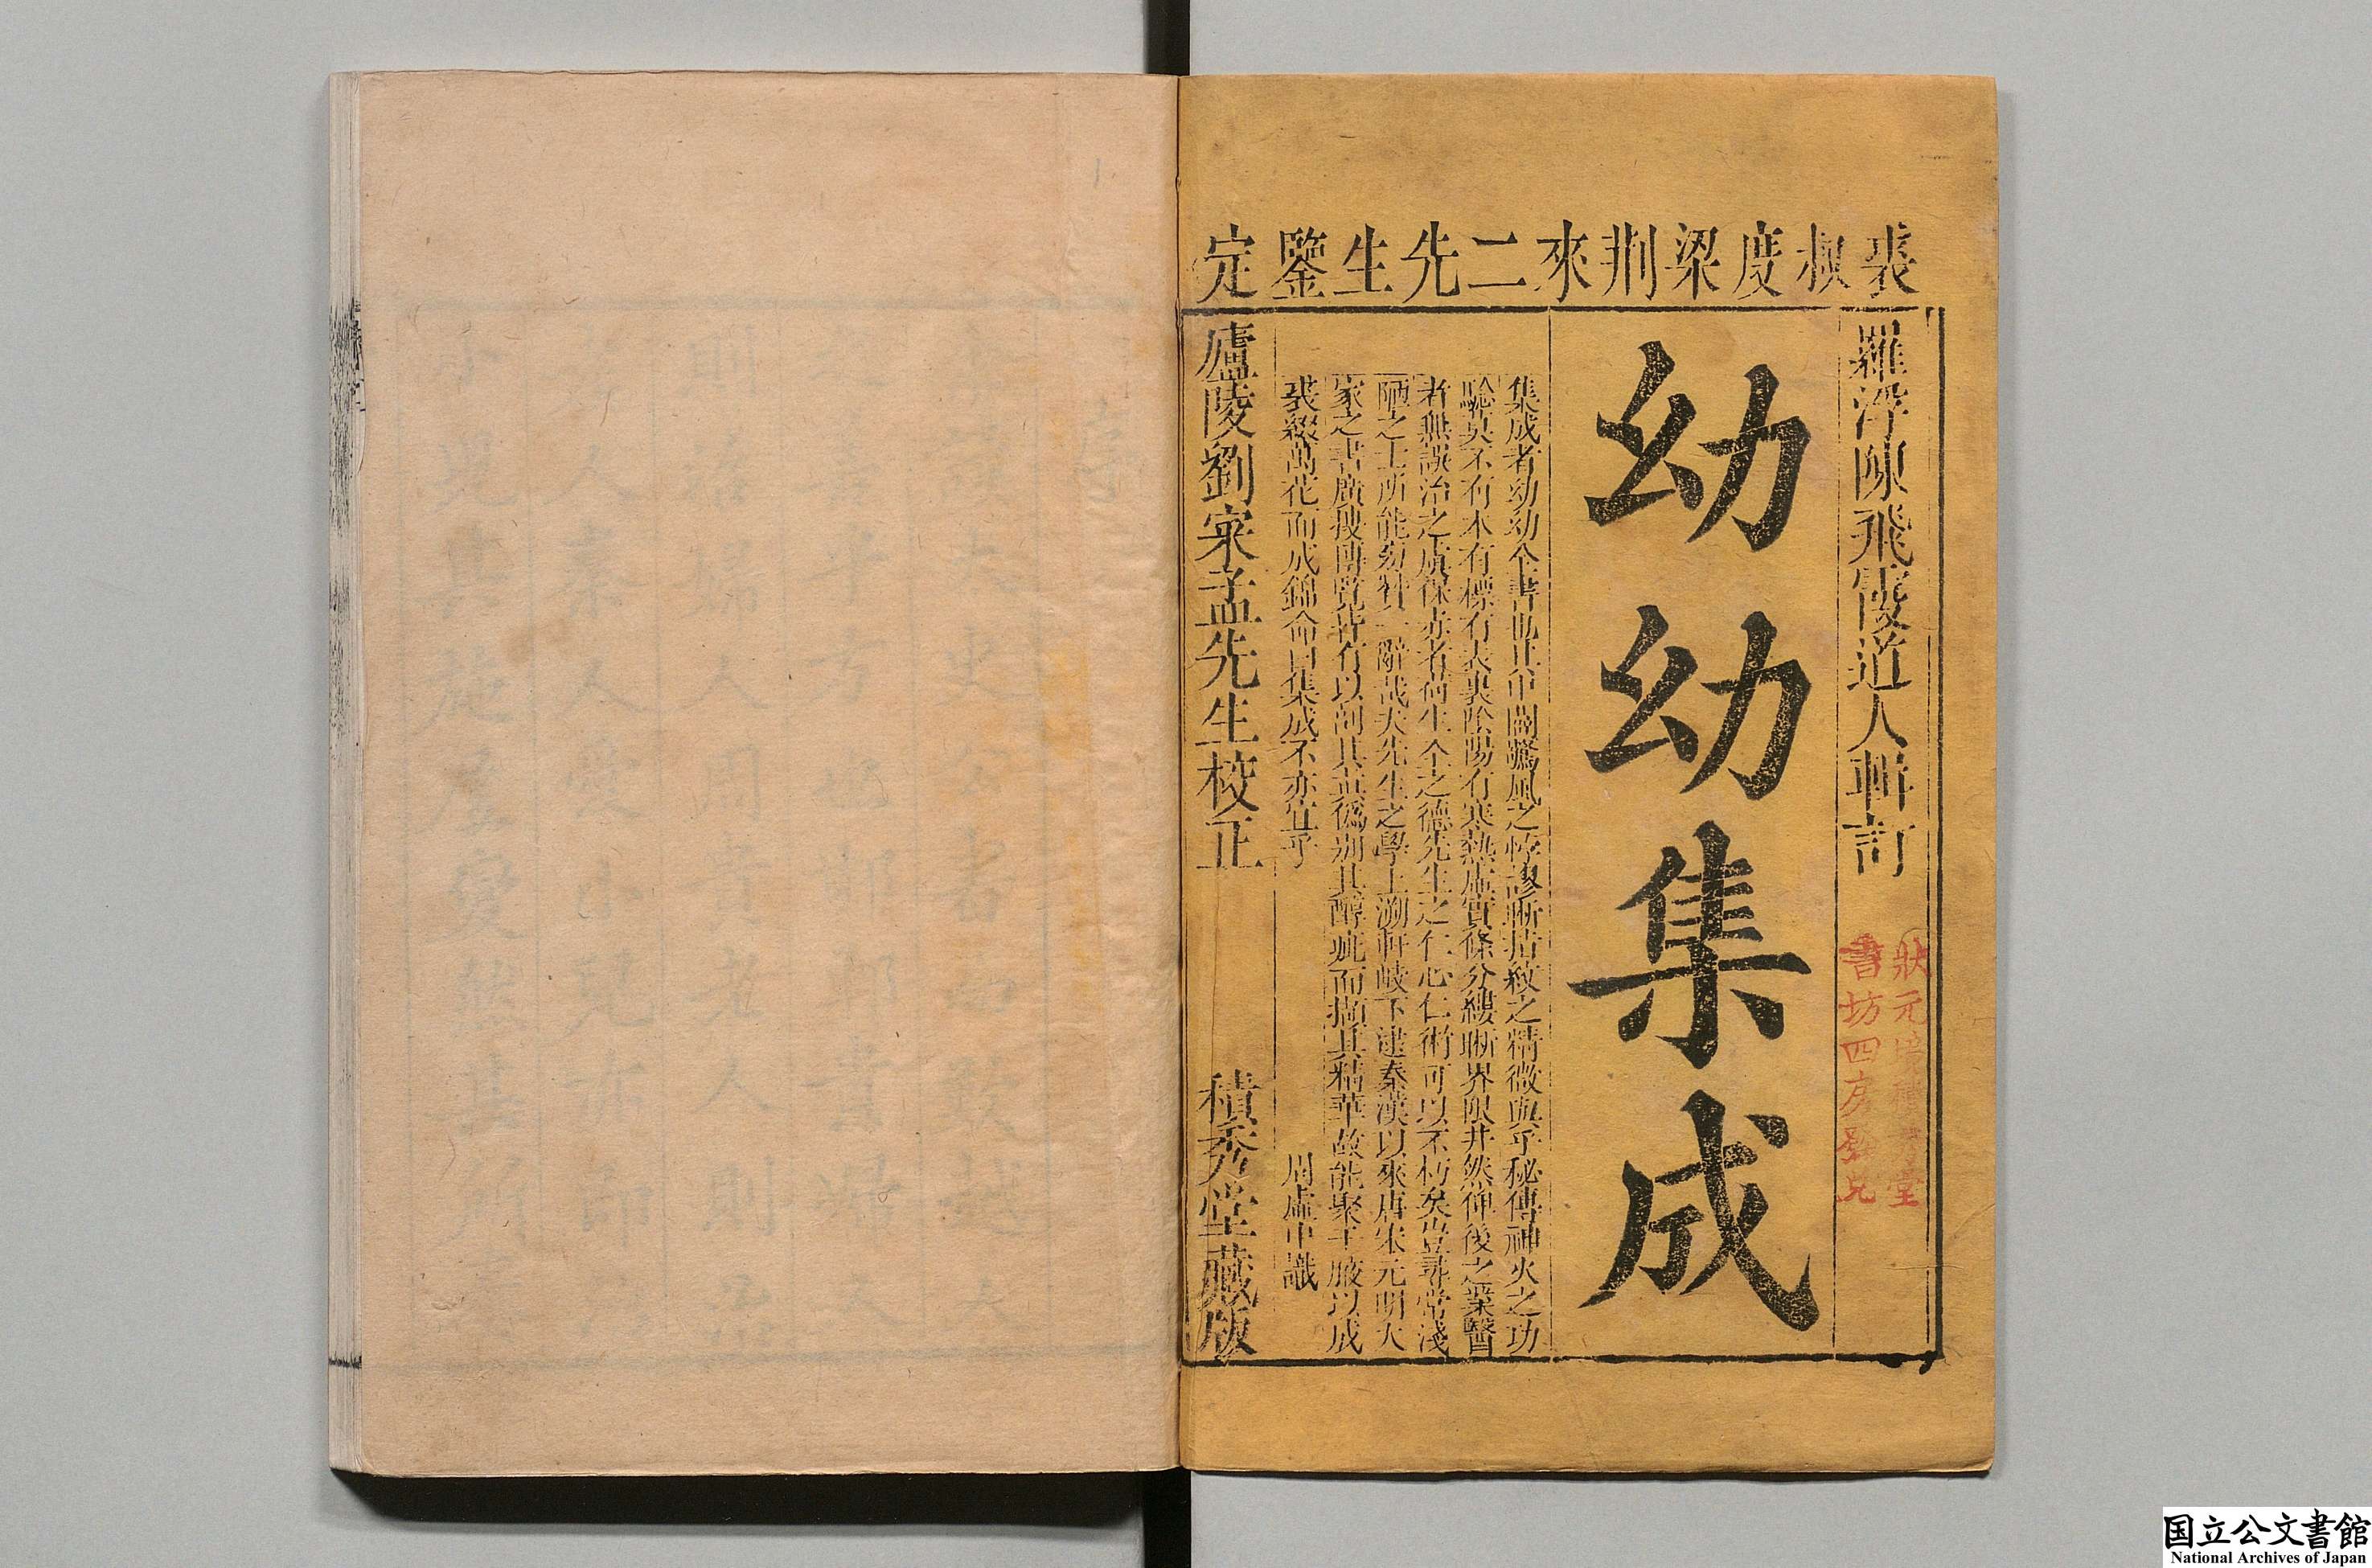 裘叔度梁荆來二先生鑒定
羅浮陳飛霞道人輯訂
狀元境積秀堂
書坊四房發兌
幼幼集成
集成者幼幼全書也其中闢驚風之悖謬晰指紋之精微與乎秘傳神火之功
驗莫不有本有標有表裏陰陽有寒熱虛實條分縷晰界限井然俾後之業醫
者無誤治之虞保赤者荷生全之德先生之仁心仁術可以不朽矣豈尋常淺
陋之工所能易贊一辭哉夫先生之學上溯軒岐下逮秦漢以來唐宋元明大
家之書廣搜博覽皆有以剖其真僞别其醇疵而擷其精華故能聚千腋以成
裘綴萬花而成錦命曰集成不亦宜乎
周虛中識
廬陵劉宷孟先生校正
積秀堂藏版
国立公文書館
National Archives of Japan